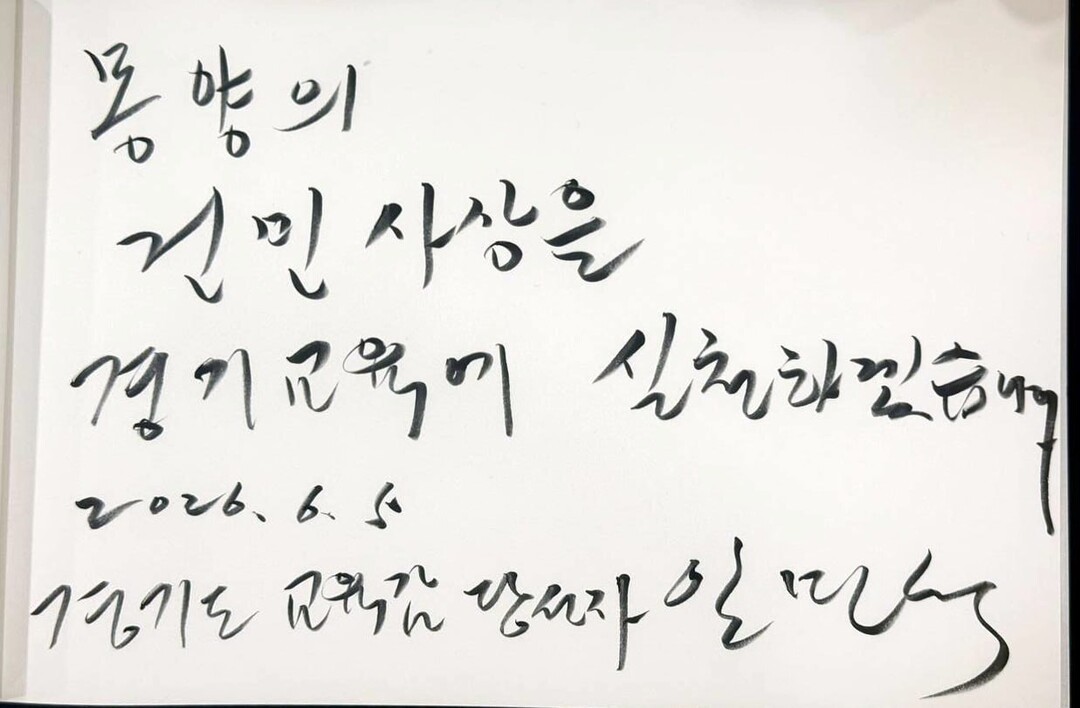 몽양의
건민 사상을
경기교육에 실천하겠습니다
2026. 6. 5
경기도 교육감 당선자 안민석